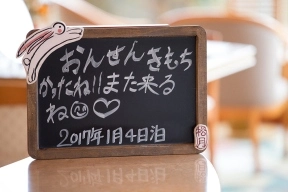 おんせんきもち
かったね!!また来る
ね☺♡
2017年1月4日泊